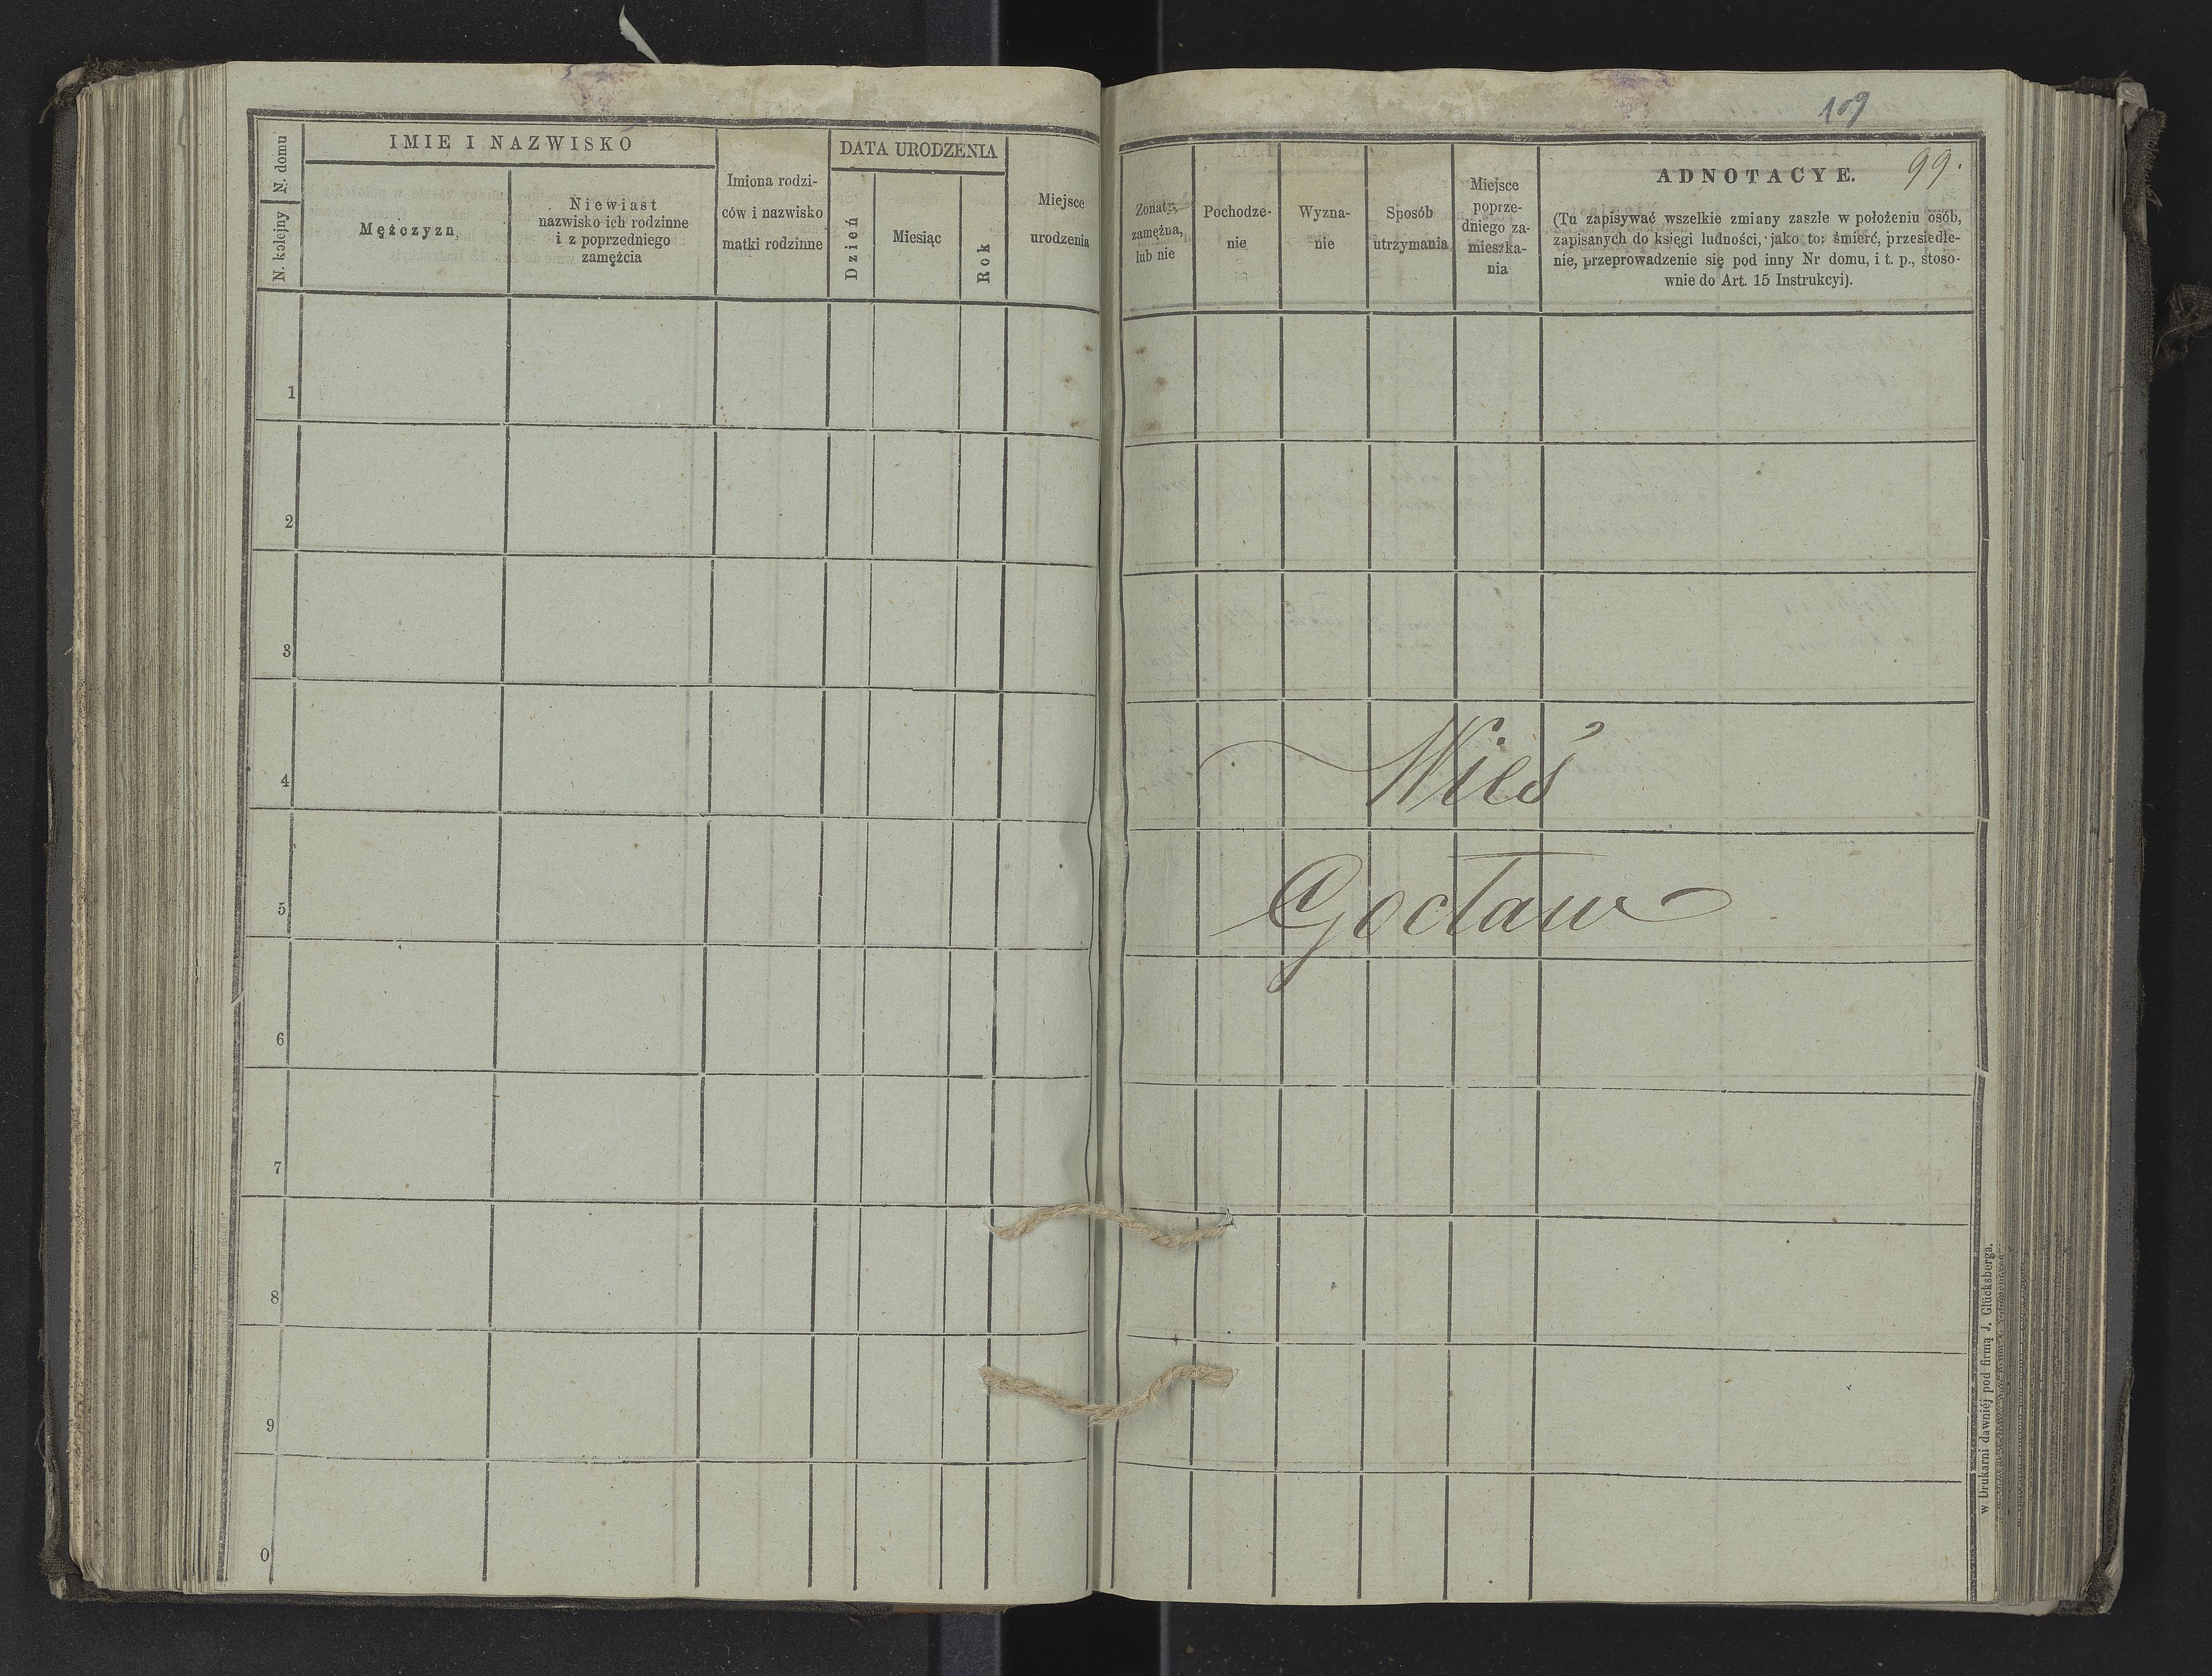 N. domu
N. kolejny
IMIE I NAZWISKO
Mężczyzn,
Niewiast
nazwisko ich rodzinne
i z poprzedniego
zamężcia
Imiona rodzi-
ców i nazwisko
matki rodzinne
DATA URODZENIA
Dzień
Miesiąc
Rok
Miejsce
urodzenia
1
2
3
4
5
6
7
8
9
0
109
99.
Żonaty,
zamężna,
lub nie
Pochodze-
nie
Wyzna-
nie
Sposób
utrzymania
Miejsce
poprze-
dniego za-
mieszka-
nia
ADNOTACYE.
(Tu zapisywać wszelkie zmiany zaszłe w położeniu osób,
zapisanych do księgi ludności, jako to: śmierć, przesiedle-
nie, przeprowadzenie się pod inny Nr domu, i t. p., stoso-
wnie do Art. 15 Instrukcyi).
Wieś
Gocław
w Drukarni dawniéj pod firmą J. Glücksberga.